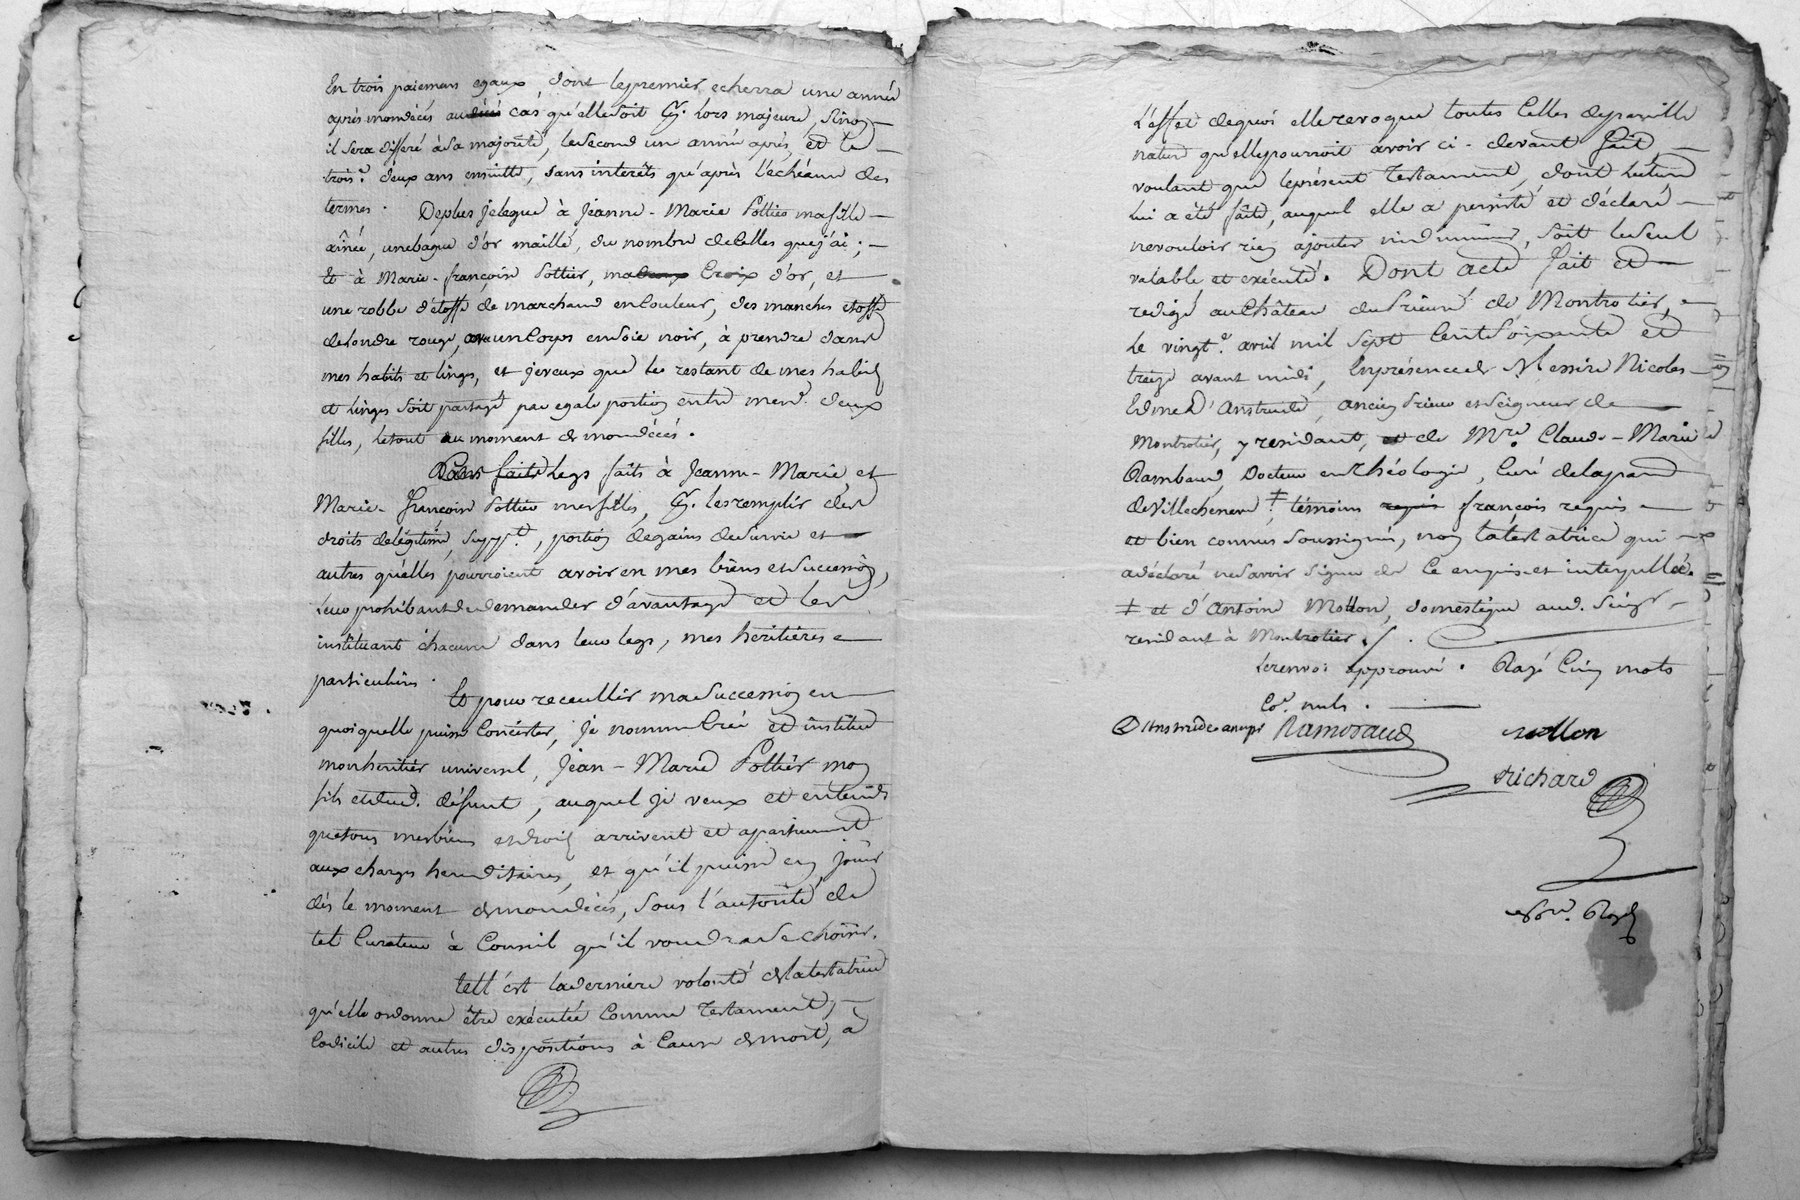 En trois paiemens egaux, dont le premier echerra une année
après mon décés au cas qu'elle soit pr. lors majeure, sinon
il sera differé à sa majorité, le second un année après, et le
trois.e deux ans ensuitte, sans interêts qu'après l'echéance des
termes. De plus je legue à Jeanne-Marie Pottier ma fille
aînée, une bague d'or maillé, du nombre de celles que j'ai;
Et à Marie-françoise Pottier, ma Croix d'or, et
une robbe d'étoffe de marchand en Couleur, des manches etoffe
de Londre rouge, un Corps en soie noir, à prendre dans
mes habits et linges, et je veux que le restant de mes habits
et linges soit partagé par egale portion entre mesd. deux
filles, le tout au moment de mon décés.
Legs faits à Jeanne-Marie, et
Marie-françoise Pottier mes filles, pr. les remplir des
droits de légitime, supp.t, portion de gains de survie et
autres qu'elles pourroient avoir en mes biens et succession,
leur prohibant de demander d'avantage et les
instituant chacune dans leur legs, mes heritières
particulières.
Et pour receuillir ma succession en
quoi quelle puisse Concister, je nomme Créé et institue
mon heritier universel, Jean-Marie Pottier mon
fils et dud. défunt, auquel je veux et entends
que tous mes biens et droits arrivent et apartiennent
aux charges hereditaires, et qu'il puisse en jouir
dès le moment de mon décés, sous l'autorité de
tel Curateur à Conseil qu'il voudra se choisir.
tell'est la dernière volonté de la testatrice
qu'elle ordonne être exécutée Comme Testament,
Codicile et autres dispositions à Cause de mort, à
L'effet de quoi elle revoque toutes Celles de pareille
nature qu'elle pourroit avoir ci-devant fait,
voulant que le présent Testament, dont lecture
lui a été faite, auquel elle a persisté et déclaré
ne vouloir rien ajouter ni diminuer, soit le seul
valable et exécuté. Dont acte fait et
redigé au Château du Prieuré de Montrotier,
le vingt.e avril mil sept Cent soixante et
treize avant midi, En présence de Messire Nicolas
Edme D'Anstrude, ancien Prieur et seigneur de
Montrotier, y residant, et de Mre. Claude-Marie
Rambaud, Docteur en Théologie, Curé de la par.
de Villechenève ‡ témoins françois requis
et bien connus soussignés, non la testatrice qui
a déclaré ne savoir signer de Ce enquise et interpellée.
‡ et d'Antoine Mollon, domestique aud. Seigr
residant à Montrotier.
Le renvoi approuvé. Rayé Cinq mots
Co. nuls.
D'Anstrude anc. pr Rambaud Mollon
Richard